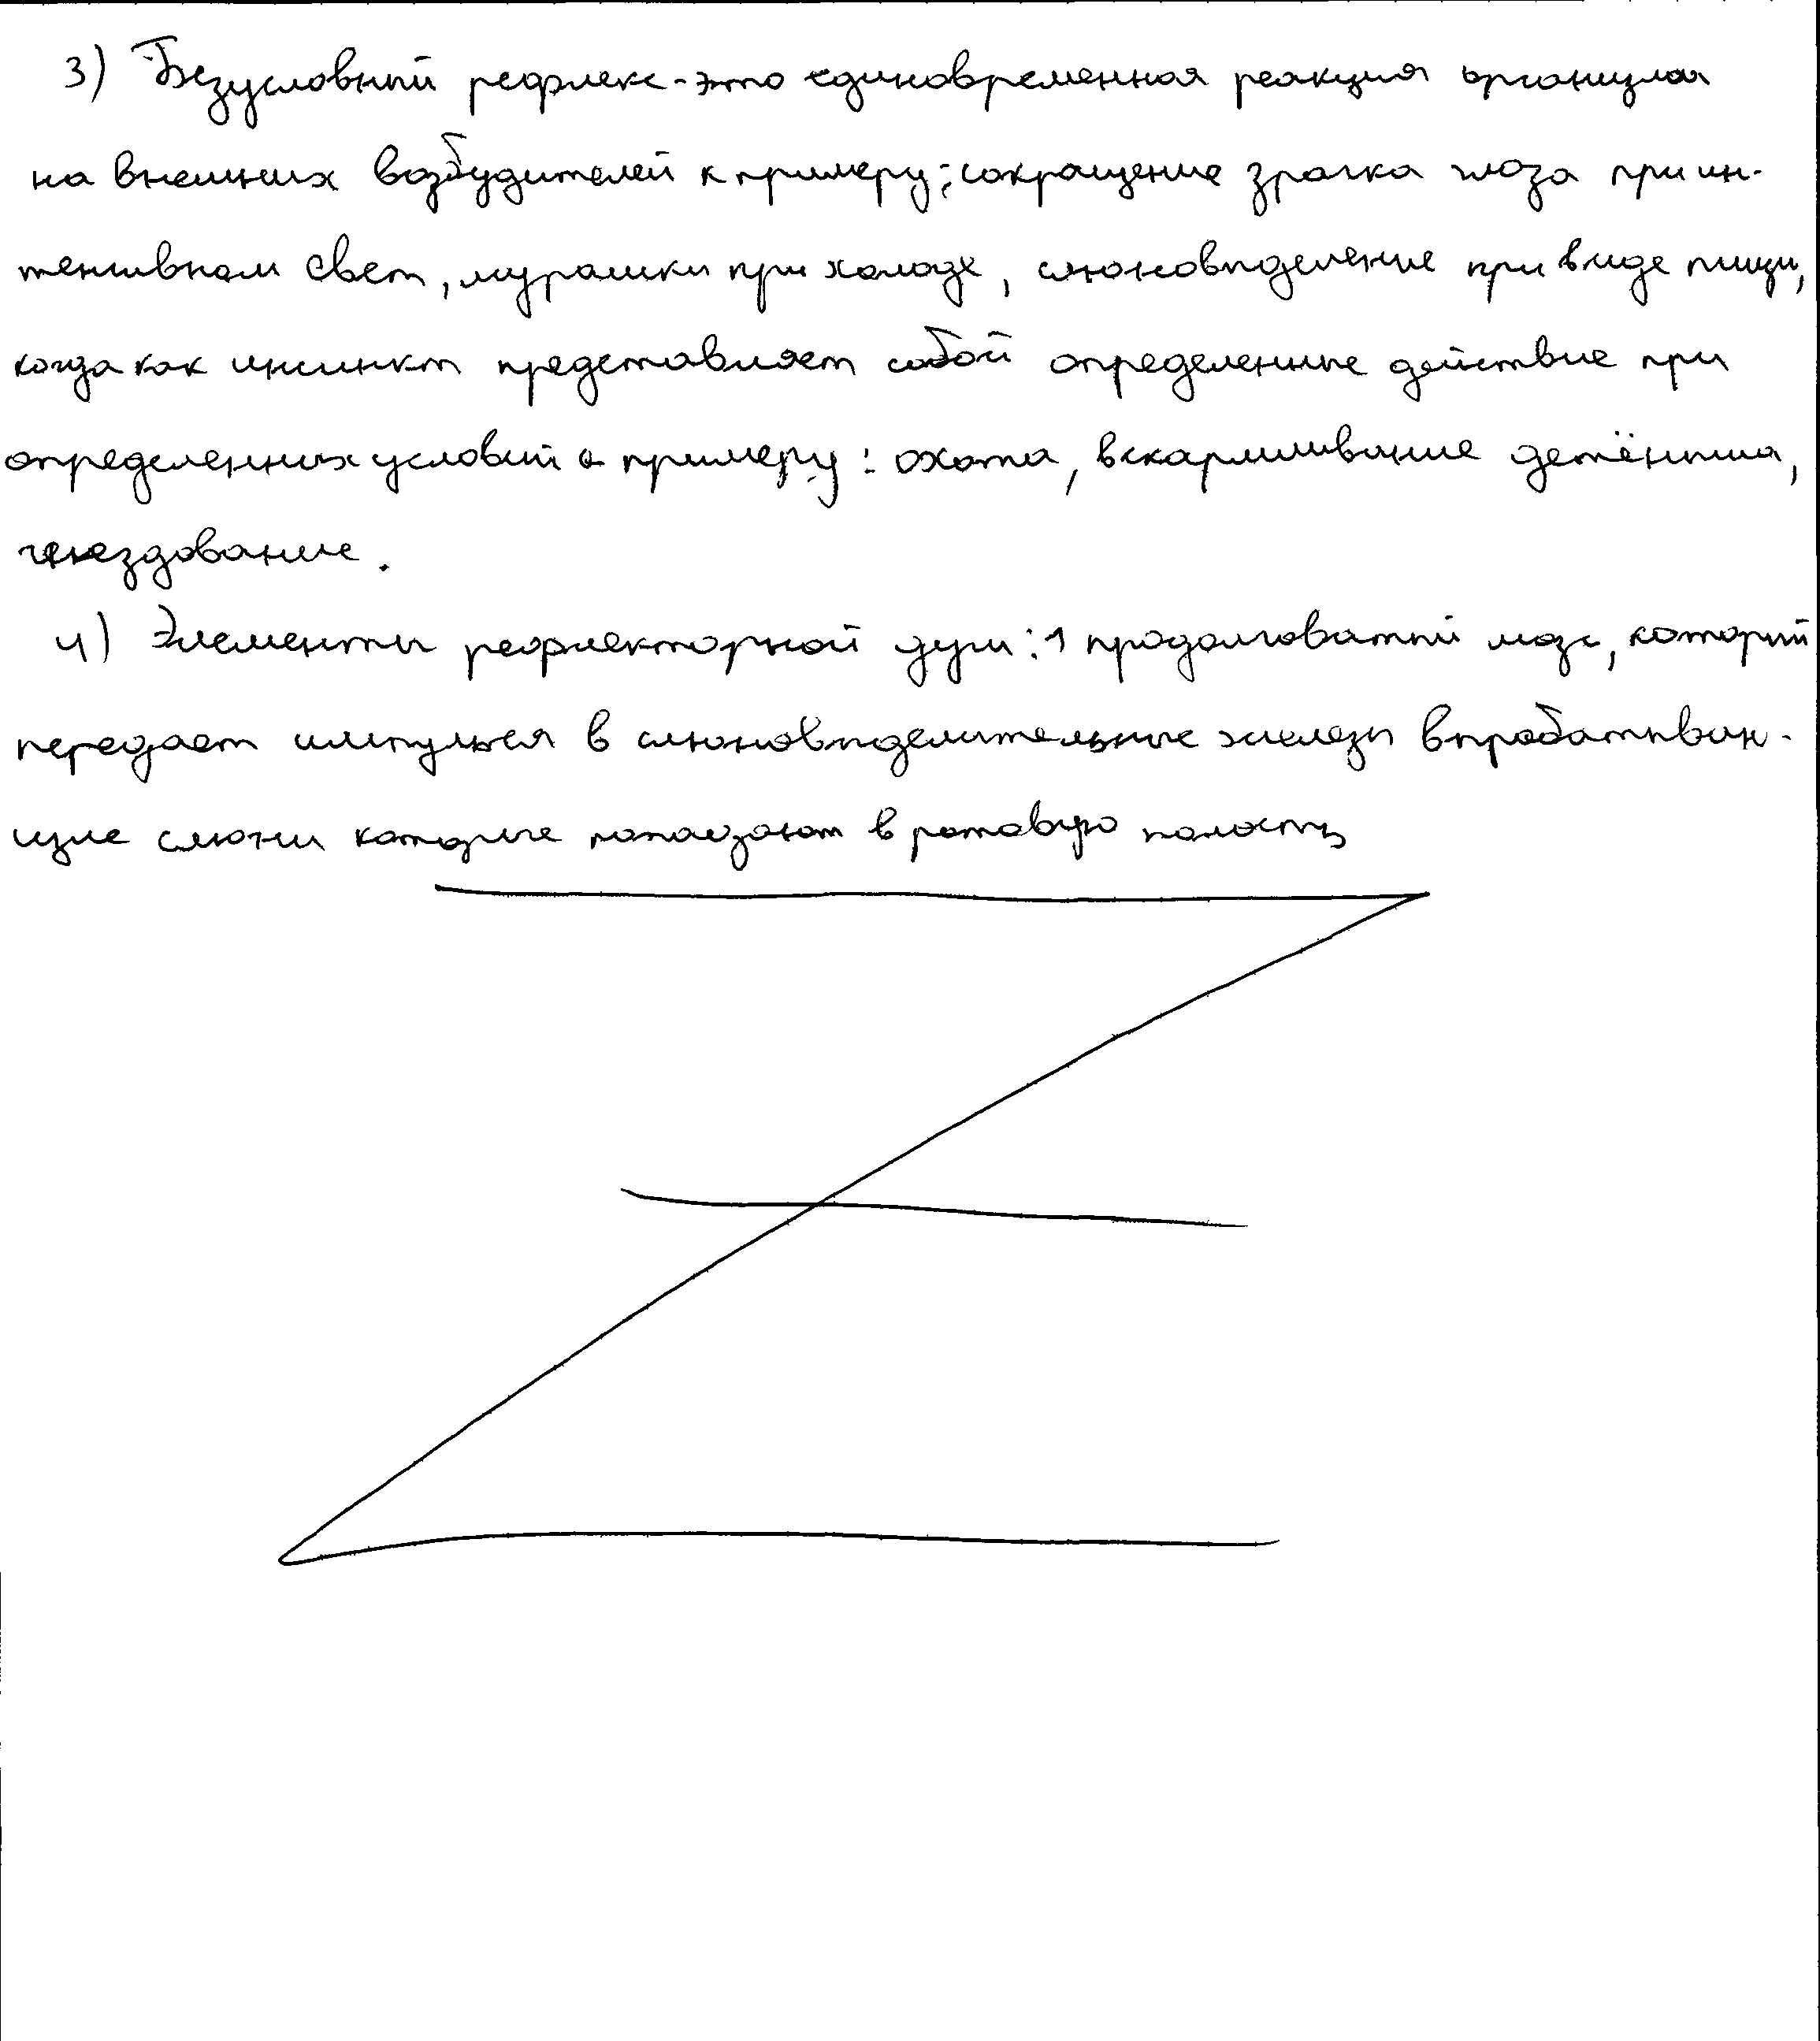 3) Безусловный рефлекс - это единовременная реакция организма
на внешних возбудителей к примеру: сокращение зрачка глаза при ин-
тенсивном свет, мурашки при холоде, слюновыделение при виде пищи,
когда как инсинкт представляет собой определенные действие при
определенных условий к примеру: охота, вскармливание детёныша,
гнездование.
4) Элементы рефлекторной дуги: 1 продолговатый мозг, который
передает импульсы в слюновыделительные железы вырабатываю-
щие слюни которые попадают в ротовую полость